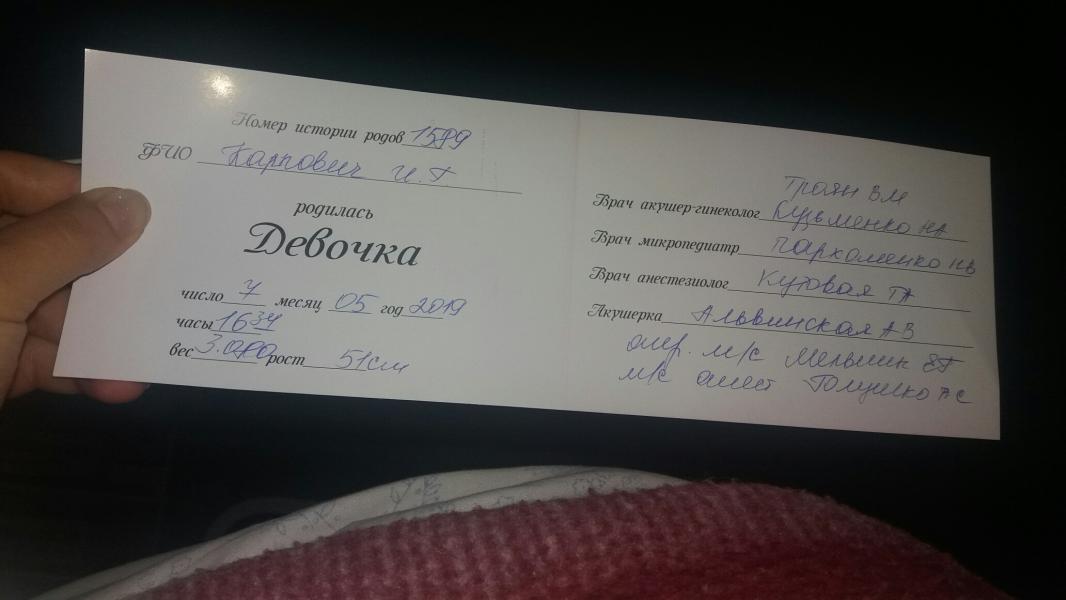 Номер истории родов 1599
ФИО Карпович И.Г.
родилась
Девочка
число 7 месяц 05 год 2019
часы 16 34
вес 3.0 рост 51см
Троян ВМ
Врач акушер-гинеколог Кузьменко НА
Врач микропедиатр Пархоменко НВ
Врач анестезиолог Кутовая ТА
Акушерка Альвинская А В
опер. м/с Мельник ЕГ
м/с анест АС